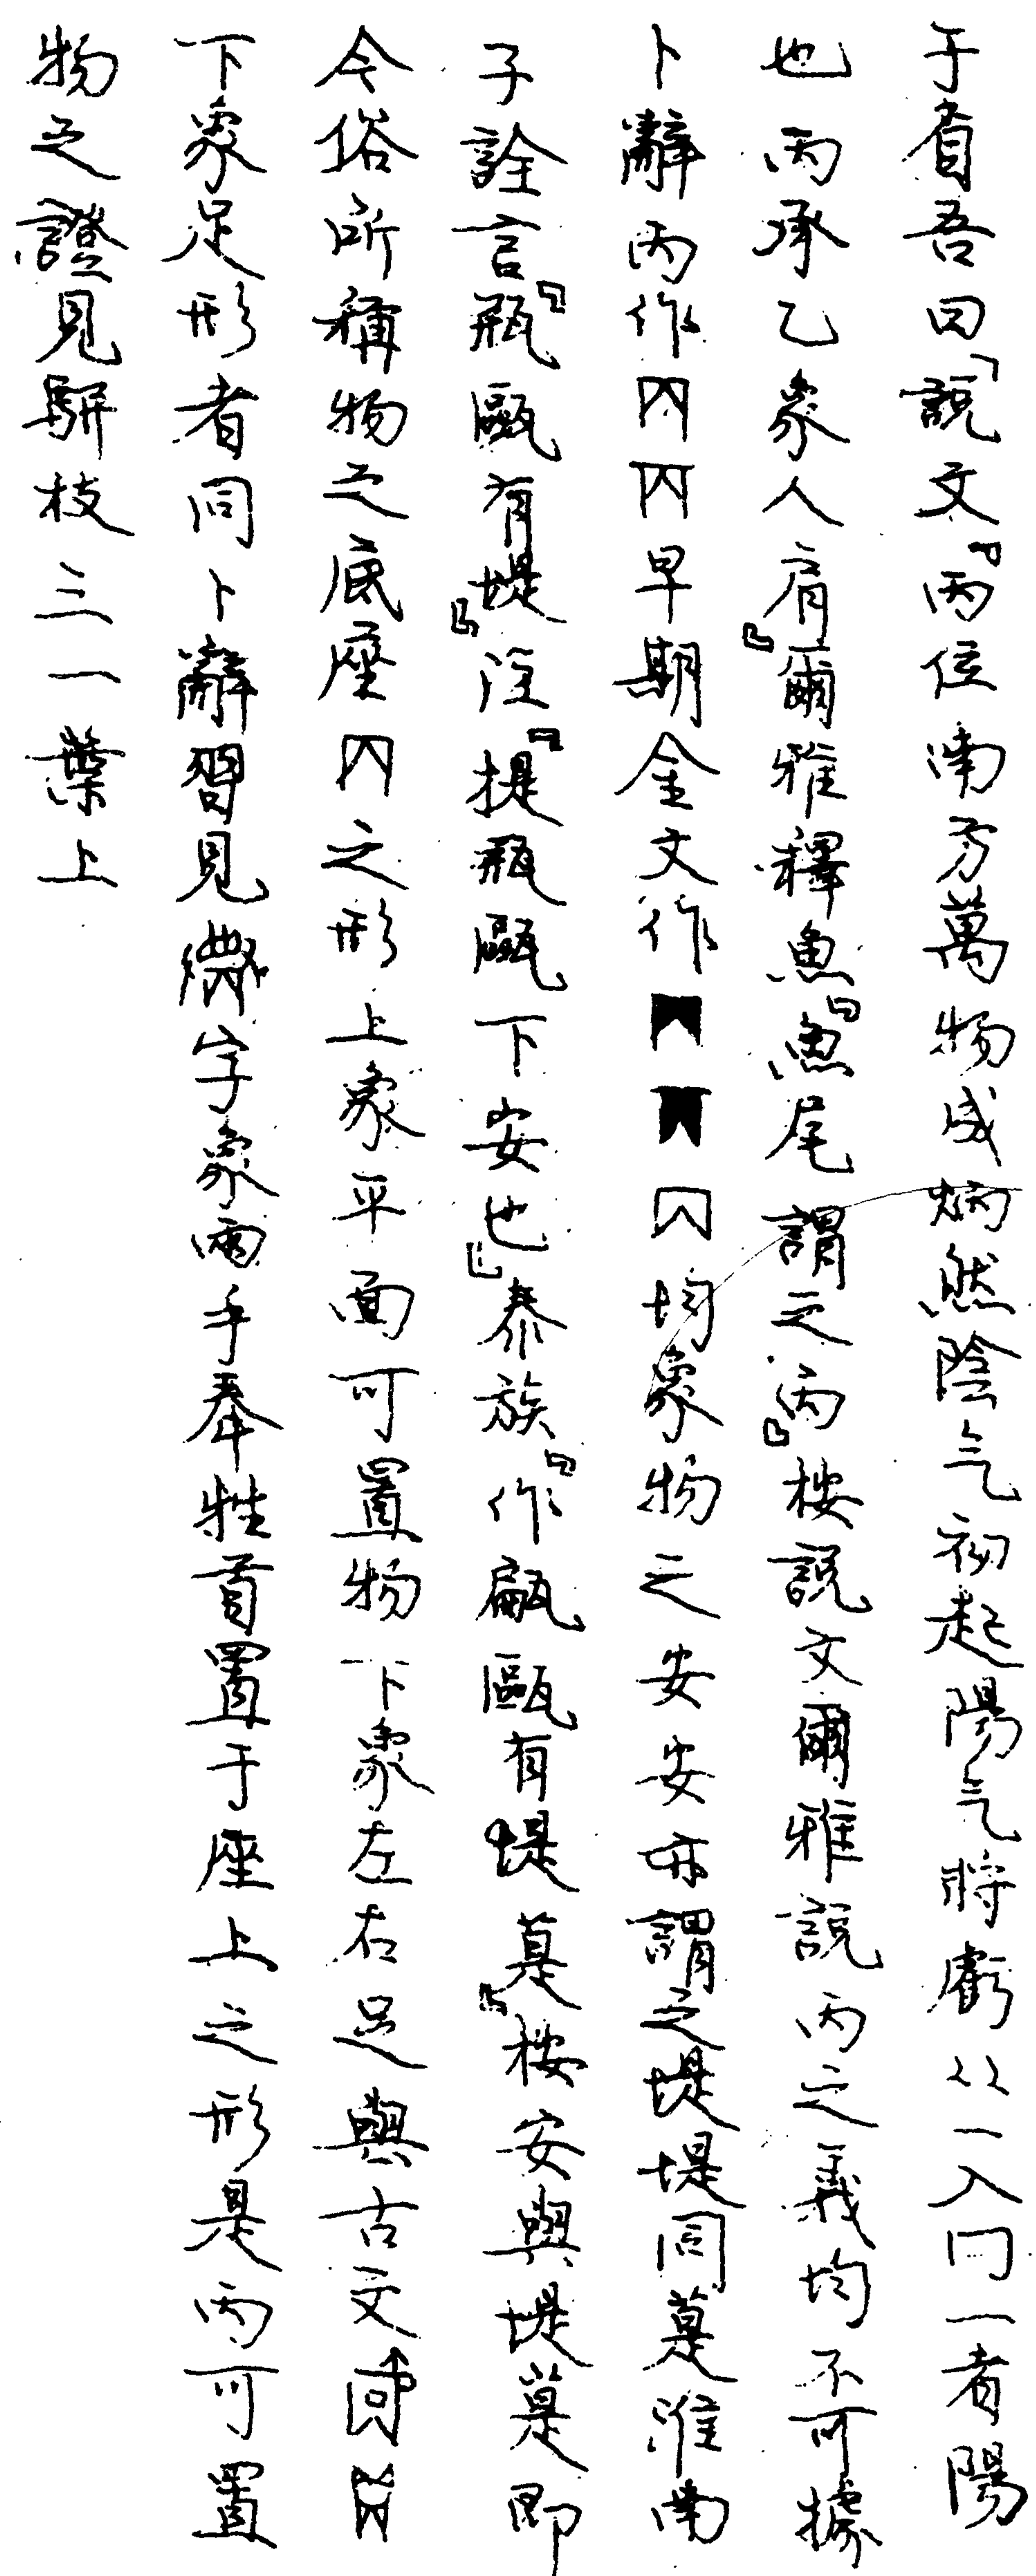 于省吾曰「說文『丙位南方萬物成炳然陰气初起陽气將虧从一入冂一者陽
也丙承乙象人肩』爾雅釋魚『魚尾謂之丙』桉說文爾雅說丙之義均不可據
卜辭丙作早期金文作均象物之安安亦謂之堤堤同䓳淮南
子詮言『瓶甌有堤』注『提瓶甌下安也』泰族『作瓾甌有堤䓳』桉安與堤䓳即
今俗所稱物之底座之形上象平面可置物下象左右足與古文
下象足形者同卜辭習見字象兩手奉牲首置于座上之形是丙可置
物之證見駢枝三一葉上